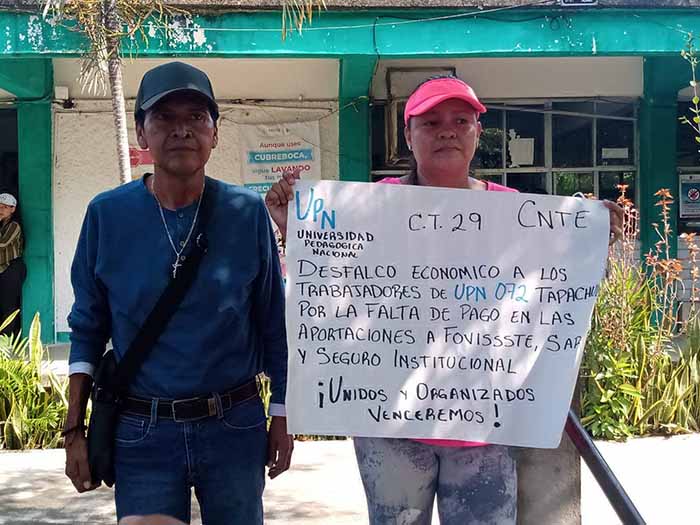 Aunque uses
CUBREBOCA,
sigue LAVANDO
UPN
C.T. 29
CNTE
UNIVERSIDAD
PEDAGOGICA
NACIONAL
DESFALCO ECONOMICO A LOS
TRABAJADORES DE UPN 072 TAPACHUL
POR LA FALTA DE PAGO EN LAS
APORTACIONES A FOVISSSTE, SAR
Y SEGURO INSTITUCIONAL
¡UNIDOS Y ORGANIZADOS
VENCEREMOS!